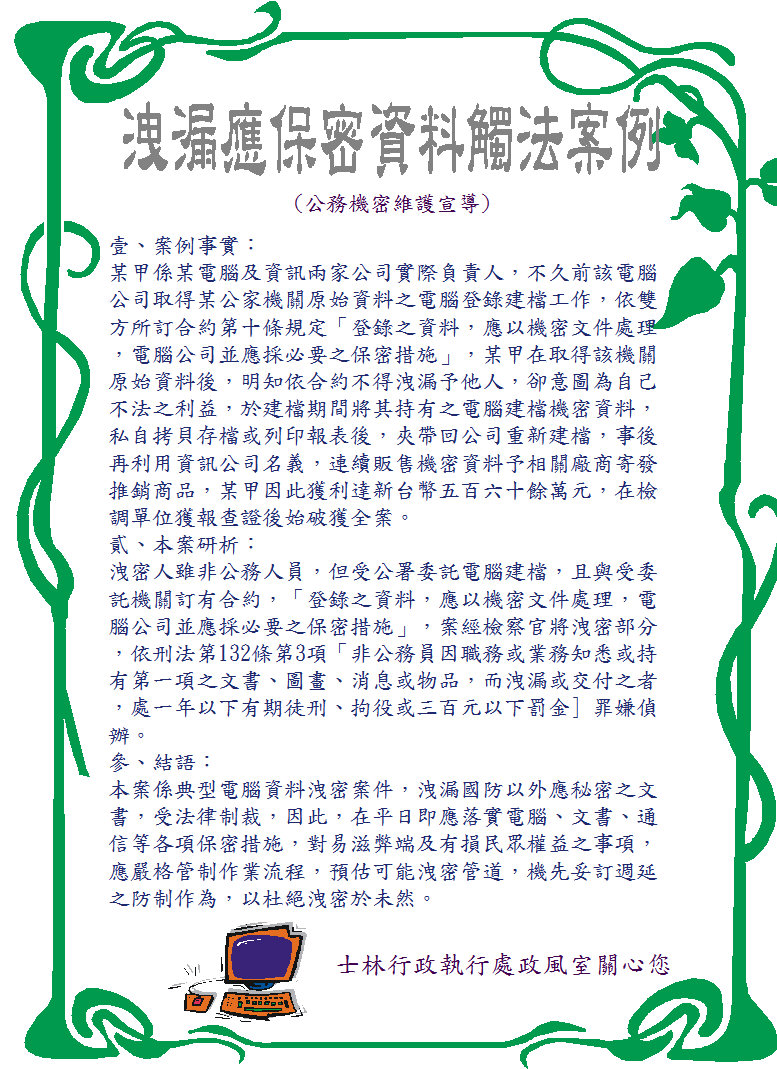 洩漏應保密資料觸法案例
(公務機密維護宣導)
壹、案例事實：
某甲係某電腦及資訊兩家公司實際負責人，不久前該電腦
公司取得某公家機關原始資料之電腦登錄建檔工作，依雙
方所訂合約第十條規定「登錄之資料，應以機密文件處理
，電腦公司並應採必要之保密措施」，某甲在取得該機關
原始資料後，明知依合約不得洩漏予他人，卻意圖為自己
不法之利益，於建檔期間將其持有之電腦建檔機密資料，
私自拷貝存檔或列印報表後，夾帶回公司重新建檔，事後
再利用資訊公司名義，連續販售機密資料予相關廠商寄發
推銷商品，某甲因此獲利達新台幣五百六十餘萬元，在檢
調單位獲報查證後始破獲全案。
貳、本案研析：
洩密人雖非公務人員，但受公署委託電腦建檔，且與受委
託機關訂有合約，「登錄之資料，應以機密文件處理，電
腦公司並應採必要之保密措施」，案經檢察官將洩密部分
，依刑法第132條第3項「非公務員因職務或業務知悉或持
有第一項之文書、圖畫、消息或物品，而洩漏或交付之者
，處一年以下有期徒刑、拘役或三百元以下罰金］罪嫌偵
辦。
參、結語：
本案係典型電腦資料洩密案件，洩漏國防以外應秘密之文
書，受法律制裁，因此，在平日即應落實電腦、文書、通
信等各項保密措施，對易滋弊端及有損民眾權益之事項，
應嚴格管制作業流程，預估可能洩密管道，機先妥訂週延
之防制作為，以杜絕洩密於未然。
士林行政執行處政風室關心您